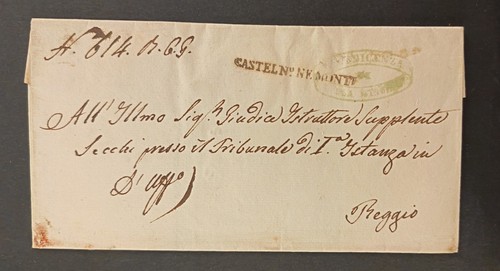 N.º 614. R. C. G.
CASTELN.º NE MONTI
All' Illmo Sig.r Giudice Istruttore Supplente
Secchi presso il Tribunale di I.a Istanza in
D'Uffo
Reggio